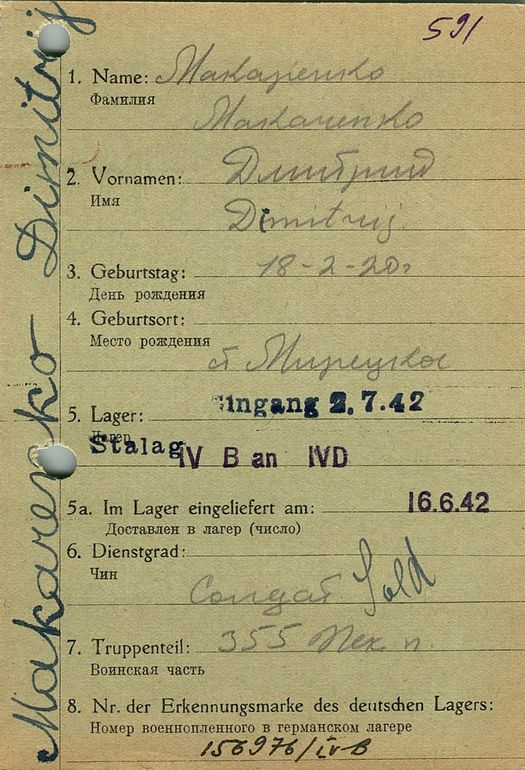 591
Makarenko Dimitrij
1. Name: Макаренко
Фамилия
Makarenko
2. Vornamen: Дмитрий
Имя
Dimitrij
3. Geburtstag: 18-2-20г
День рождения
4. Geburtsort:
Место рождения
ст
5. Lager: Eingang 2.7.42
Лагерь
Stalag IV B an IVD
5a. Im Lager eingeliefert am: 16.6.42
Доставлен в лагерь (число)
6. Dienstgrad:
Чин
Солдат Sold
7. Truppenteil: 355 п.
Воинская часть
8. Nr. der Erkennungsmarke des deutschen Lagers:
Номер военнопленного в германском лагере
156976/IV-B